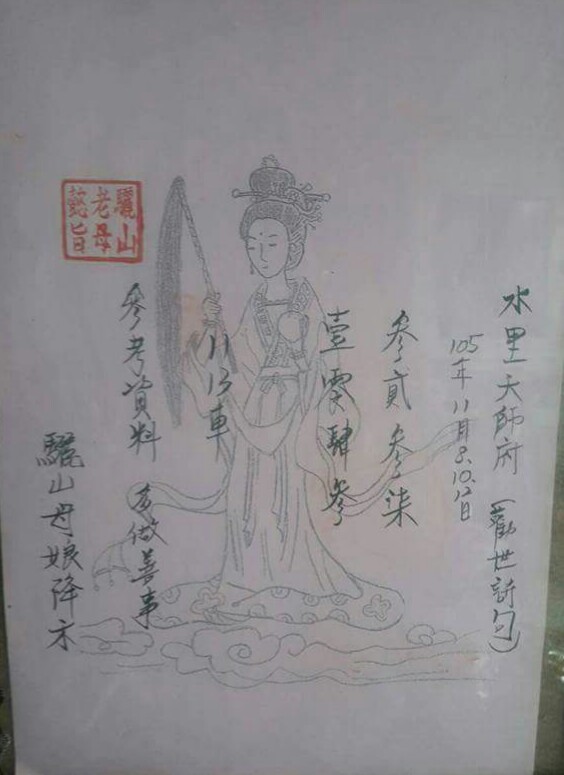 水里天師府(勸世詩句)
105年11月8.10.12日
參貳參柒
壹零肆參
11 13車
參考資料 多做善事
驪山母娘降示
驪山
老母
懿旨